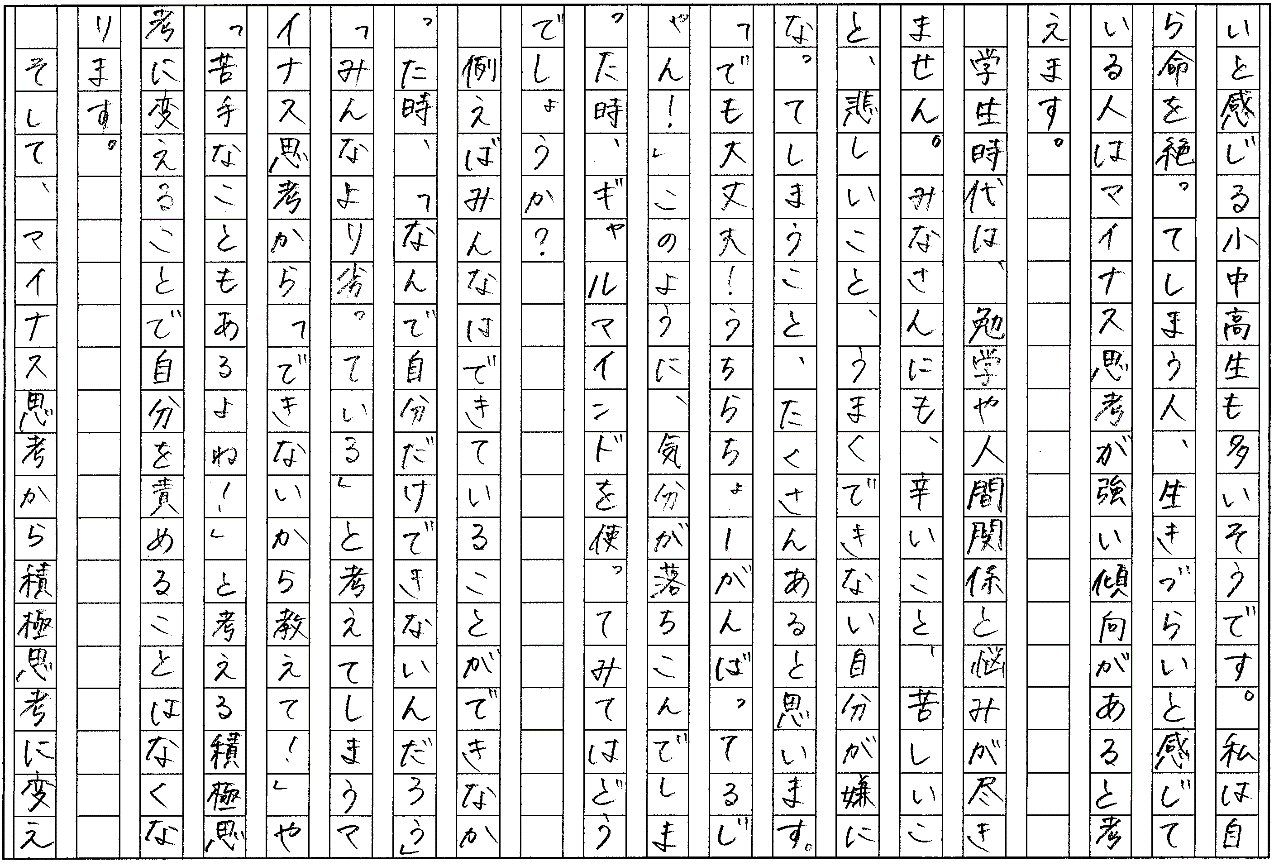 いと感じる小中高生も多いそうです。私は自
ら命を絶ってしまう人、生きづらいと感じて
いる人はマイナス思考が強い傾向があると考
えます。
学生時代は、勉学や人間関係と悩みが尽き
ません。みなさんにも、辛いこと、苦しいこ
と、悲しいこと、うまくできない自分が嫌に
なってしまうこと、たくさんあると思います。
「でも大丈夫！うちらちょーがんばってるじ
ゃん！」このように、気分が落ちこんでしま
った時、ギャルマインドを使ってみてはどう
でしょうか？
例えばみんなはできていることができなか
った時、「なんで自分だけできないんだろう」
「みんなより劣っている」と考えてしまうマ
イナス思考から「できないから教えて！」や
「苦手なこともあるよね！」と考える積極思
考に変えることで自分を責めることはなくな
ります。
そして、マイナス思考から積極思考に変え